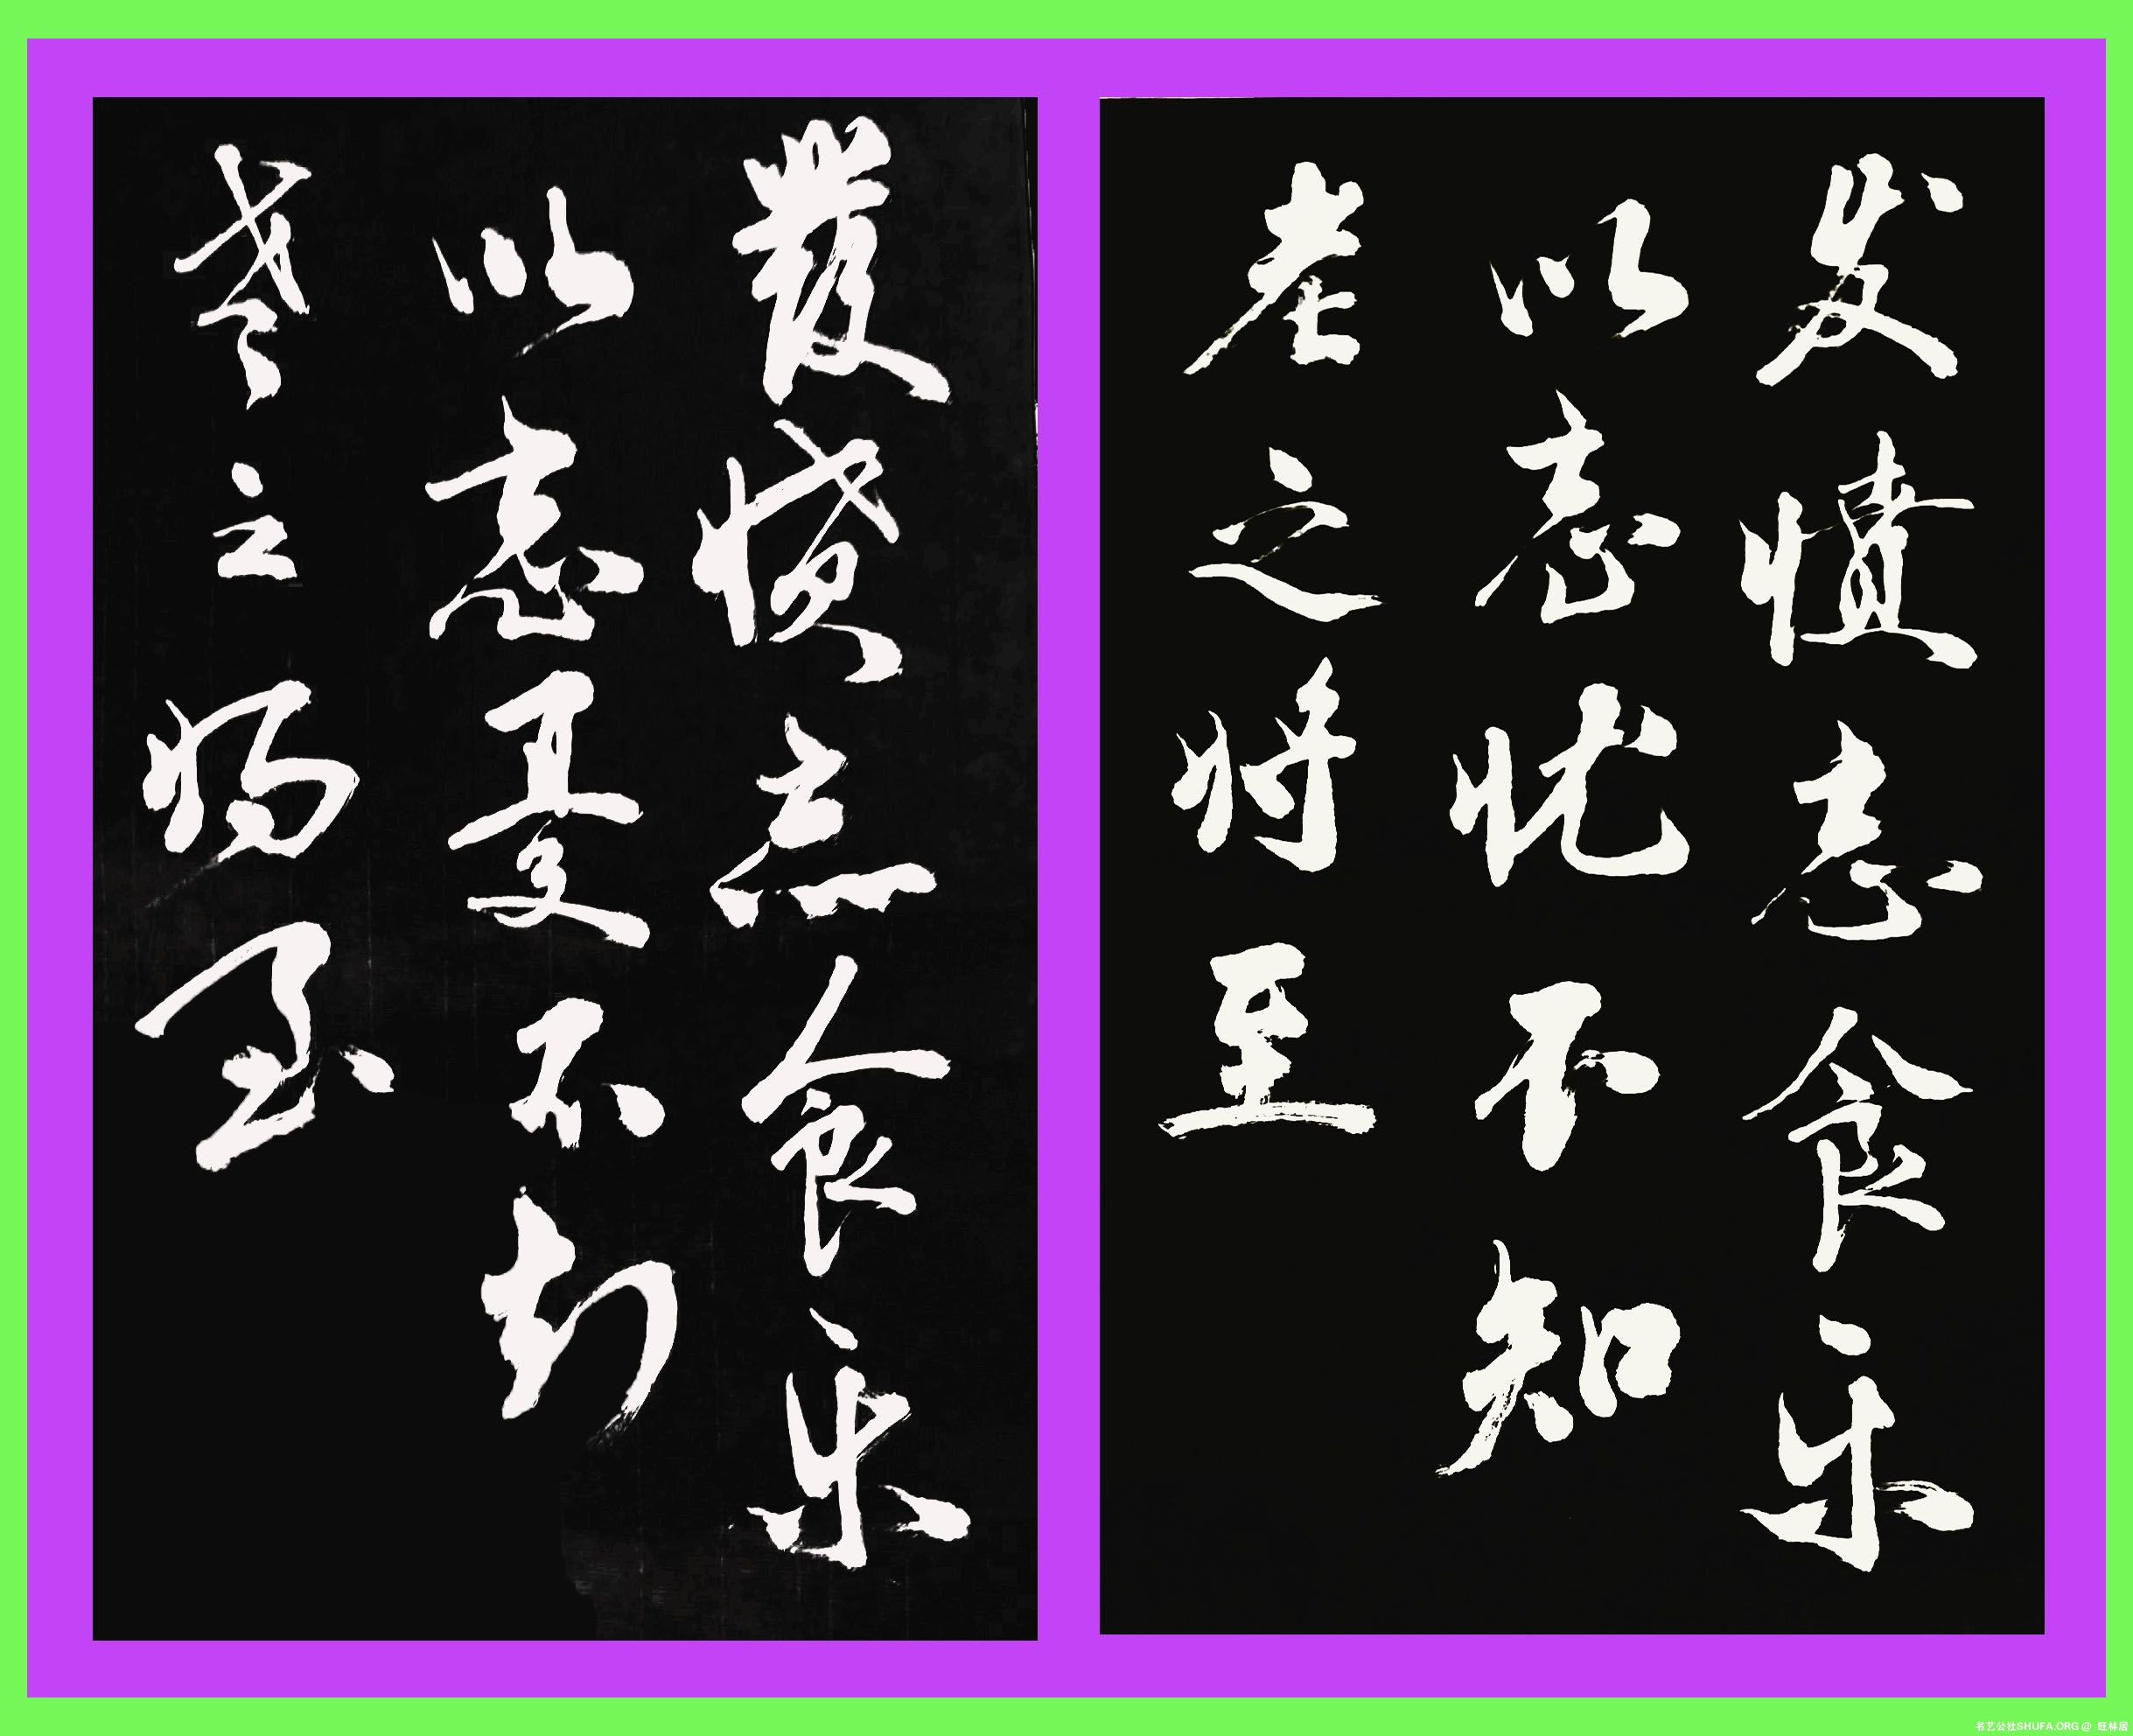 发憤忘食乐
以忘忧不知
老之将至
發憤忘食乐
以忘憂不知
老之将至
书艺公社SHUFA.ORG @ 旺林居